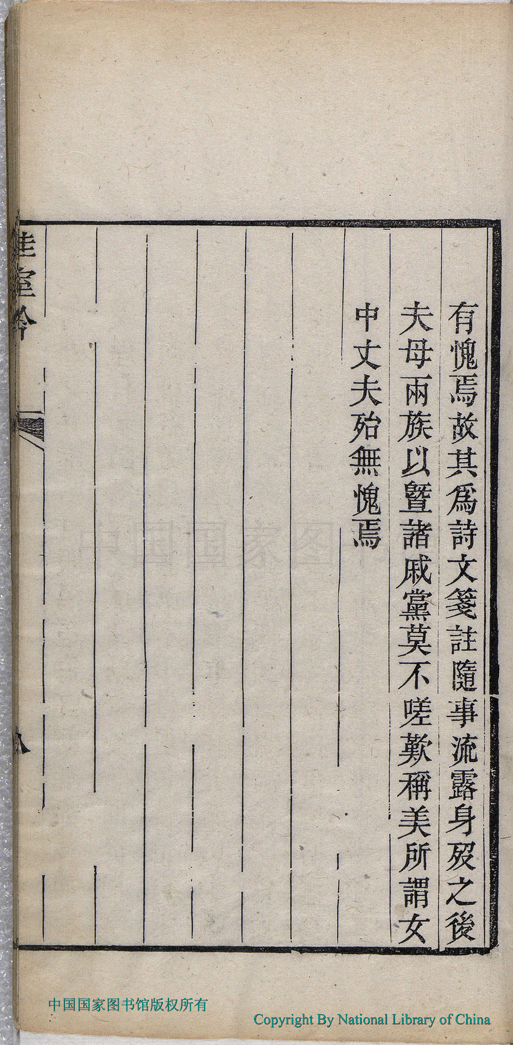 有愧焉故其爲詩文箋註隨事流露身歿之後
夫母兩族以暨諸戚黨莫不嗟歎稱美所謂女
中丈夫殆無愧焉
室吟
八
中国国家图书馆版权所有
Copyright By National Library of China